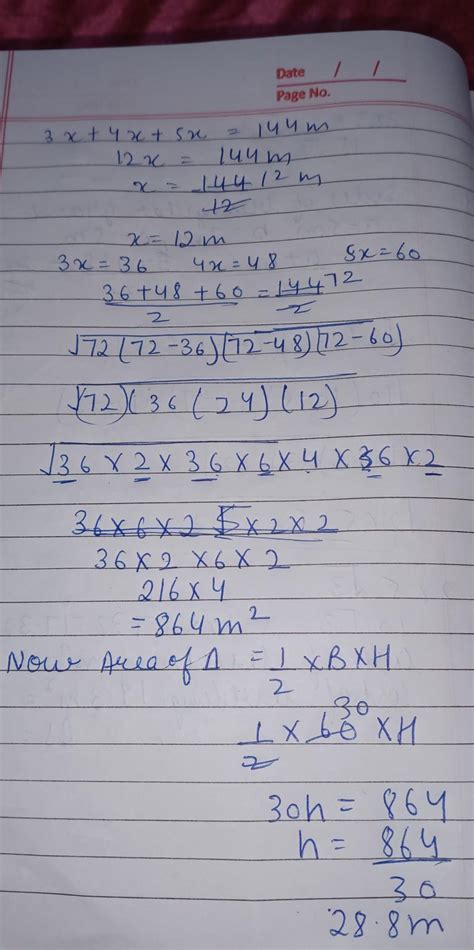 Date / /
Page No.
3x + 4x + 5x = 144m
12x = 144m
x = 144 12 m
12
x = 12m
3x = 36 4x = 48 5x = 60
36 + 48 + 60 = 144 72
2 2
√72 (72-36) (72-48) (72-60)
√(72) (36 (24) (12)
√36 × 2 × 36 × 6 × 4 × 36 × 2
36 × 6 × 2 5 × 2 × 2
36 × 2 × 6 × 2
216 × 4
= 864 m²
Now Area of Δ = 1 × B × H
2
30
1 × 60 × H
2
30h = 864
h = 864
30
28.8m